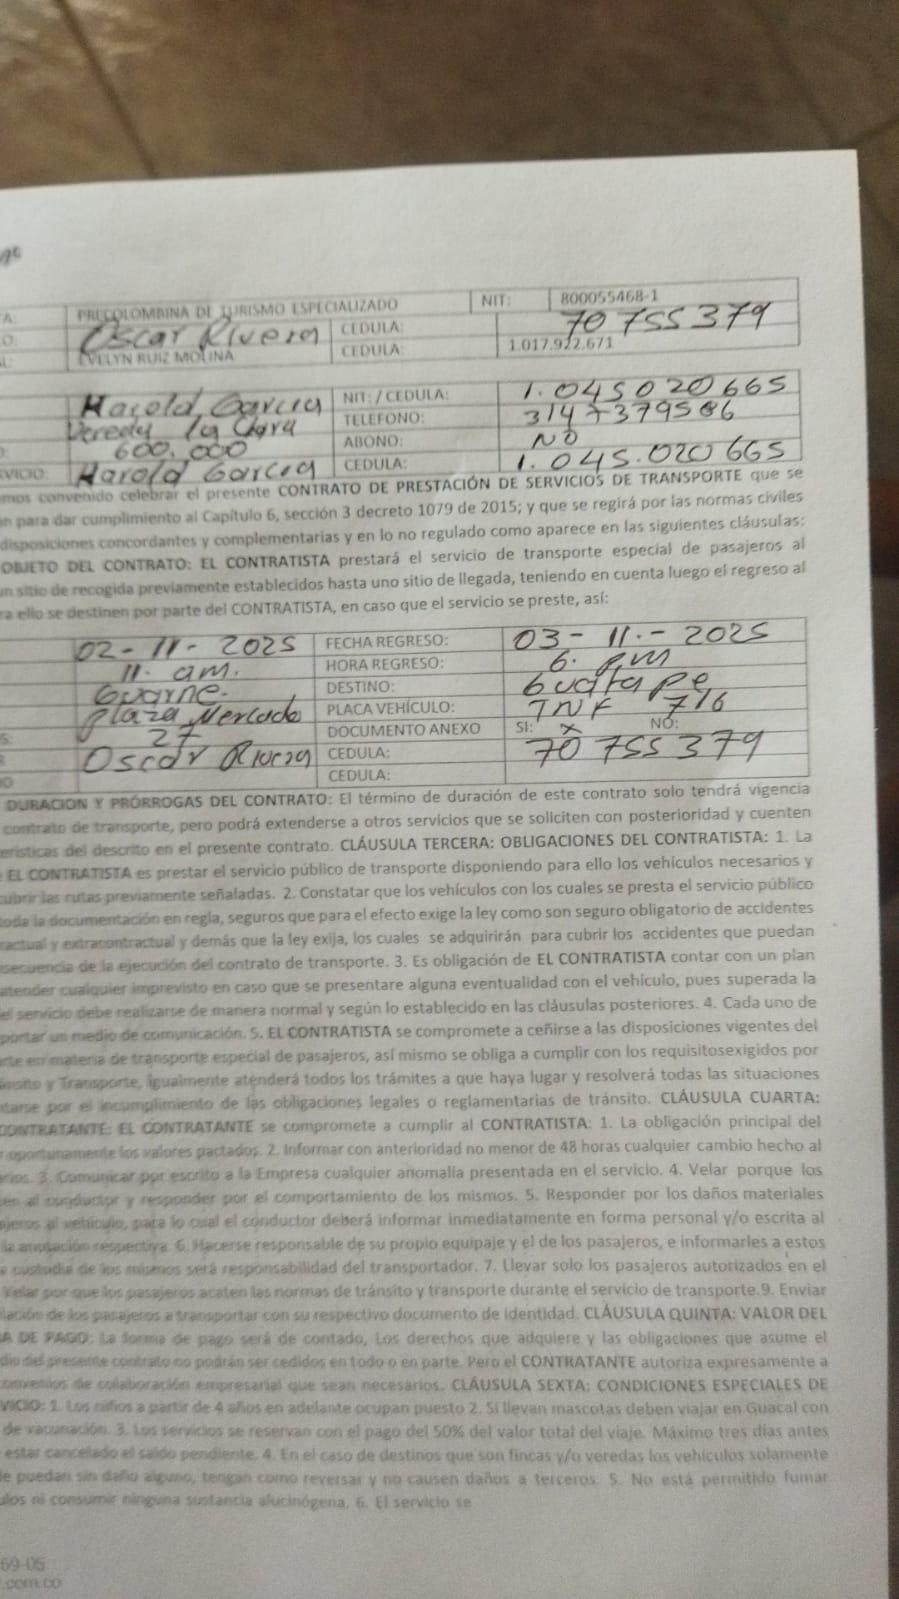 A: PRECOLOMBINA DE TURISMO ESPECIALIZADO NIT: 800055468-1
O: Oscar Rivera CEDULA: 70 755 379
L: EVELYN RUIZ MOLINA CEDULA: 1.017.922.671
Harold Garcia NIT: / CEDULA: 1.045020665
Vereda la Clara TELEFONO: 3147379586
O: 600.000 ABONO: NO
VICIO: Harold Garcia CEDULA: 1.045.020665
mos convenido celebrar el presente CONTRATO DE PRESTACIÓN DE SERVICIOS DE TRANSPORTE que se
n para dar cumplimiento al Capítulo 6, sección 3 decreto 1079 de 2015; y que se regirá por las normas civiles
disposiciones concordantes y complementarias y en lo no regulado como aparece en las siguientes cláusulas:
OBJETO DEL CONTRATO: EL CONTRATISTA prestará el servicio de transporte especial de pasajeros al
un sitio de recogida previamente establecidos hasta uno sitio de llegada, teniendo en cuenta luego el regreso al
ra ello se destinen por parte del CONTRATISTA, en caso que el servicio se preste, así:
02-11-2025 FECHA REGRESO: 03-11.-2025
11. am. HORA REGRESO: 6. pm
Guarne. DESTINO: Guatape
plaza Mercado PLACA VEHÍCULO: TNK 716
S: 27 DOCUMENTO ANEXO SI: x NO:
R Oscar Rivera CEDULA: 70 755 379
O CEDULA:
DURACION Y PRÓRROGAS DEL CONTRATO: El término de duración de este contrato solo tendrá vigencia
contrato de transporte, pero podrá extenderse a otros servicios que se soliciten con posterioridad y cuenten
erísticas del descrito en el presente contrato. CLÁUSULA TERCERA: OBLIGACIONES DEL CONTRATISTA: 1. La
EL CONTRATISTA es prestar el servicio público de transporte disponiendo para ello los vehículos necesarios y
cubrir las rutas previamente señaladas. 2. Constatar que los vehículos con los cuales se presta el servicio público
toda la documentación en regla, seguros que para el efecto exige la ley como son seguro obligatorio de accidentes
ractual y extracontractual y demás que la ley exija, los cuales se adquirirán para cubrir los accidentes que puedan
nsecuencia de la ejecución del contrato de transporte. 3. Es obligación de EL CONTRATISTA contar con un plan
atender cualquier imprevisto en caso que se presentare alguna eventualidad con el vehículo, pues superada la
el servicio debe realizarse de manera normal y según lo establecido en las cláusulas posteriores. 4. Cada uno de
portar un medio de comunicación. 5. EL CONTRATISTA se compromete a ceñirse a las disposiciones vigentes del
rte en materia de transporte especial de pasajeros, así mismo se obliga a cumplir con los requisitosexigidos por
ánsito y Transporte, igualmente atenderá todos los trámites a que haya lugar y resolverá todas las situaciones
ntarse por el incumplimiento de las obligaciones legales o reglamentarias de tránsito. CLÁUSULA CUARTA:
CONTRATANTE: EL CONTRATANTE se compromete a cumplir al CONTRATISTA: 1. La obligación principal del
r oportunamente los valores pactados. 2. Informar con anterioridad no menor de 48 horas cualquier cambio hecho al
arios. 3. Comunicar por escrito a la Empresa cualquier anomalía presentada en el servicio. 4. Velar porque los
en al conductor y responder por el comportamiento de los mismos. 5. Responder por los daños materiales
ajeros al vehículo, para lo cual el conductor deberá informar inmediatamente en forma personal y/o escrita al
la anotación respectiva. 6. Hacerse responsable de su propio equipaje y el de los pasajeros, e informarles a estos
custodia de los mismos será responsabilidad del transportador. 7. Llevar solo los pasajeros autorizados en el
Velar por que los pasajeros acaten las normas de tránsito y transporte durante el servicio de transporte.9. Enviar
lación de los pasajeros a transportar con su respectivo documento de identidad. CLÁUSULA QUINTA: VALOR DEL
A DE PAGO: La forma de pago será de contado, Los derechos que adquiere y las obligaciones que asume el
dio del presente contrato no podrán ser cedidos en todo o en parte. Pero el CONTRATANTE autoriza expresamente a
convenios de colaboración empresarial que sean necesarios. CLÁUSULA SEXTA: CONDICIONES ESPECIALES DE
VICIO: 1. Los niños a partir de 4 años en adelante ocupan puesto 2. Si llevan mascotas deben viajar en Guacal con
de vacunación. 3. Los servicios se reservan con el pago del 50% del valor total del viaje. Máximo tres días antes
estar cancelado el saldo pendiente. 4. En el caso de destinos que son fincas y/o veredas los vehículos solamente
e puedan sin daño alguno, tengan como reversar y no causen daños a terceros. 5. No está permitido fumar
ulos ni consumir ninguna sustancia alucinógena. 6. El servicio se
69-05
.com.co